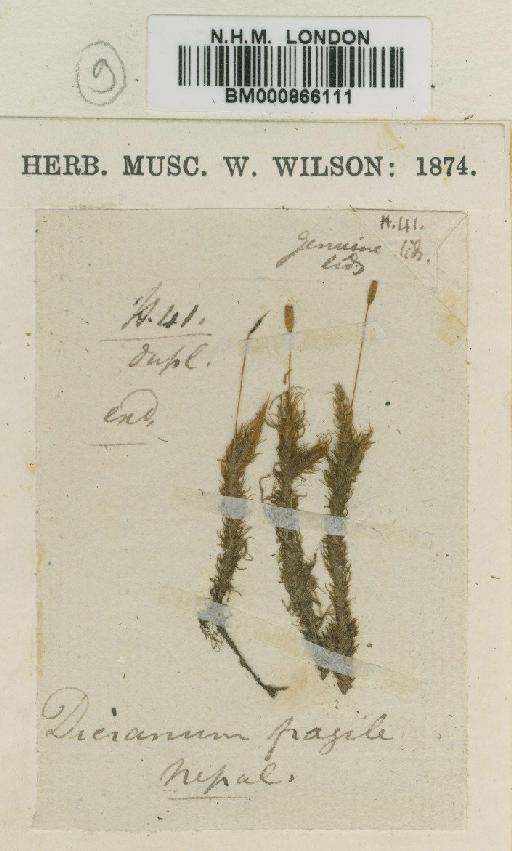 N.H.M. LONDON
BM000866111
9
HERB. MUSC. W. WILSON: 1874.
H.41.
lids
Genuine
H.41.
dupl.
Dicranum fragile
Nepal.